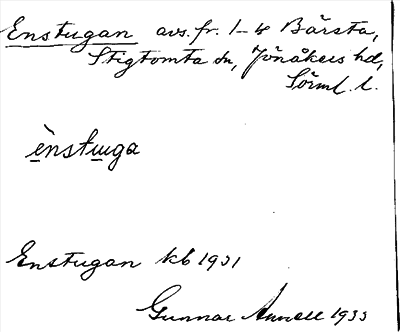 Enstugan avs. fr. 1-4 Bärsta,
Stigtomta sn, Jönåkers hd,
Sörml. l.
ènstuga
Enstugan kb 1931
Gunnar 1933